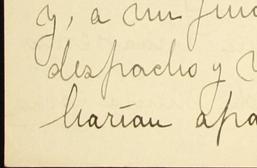 y, a mi
despacho y
harían